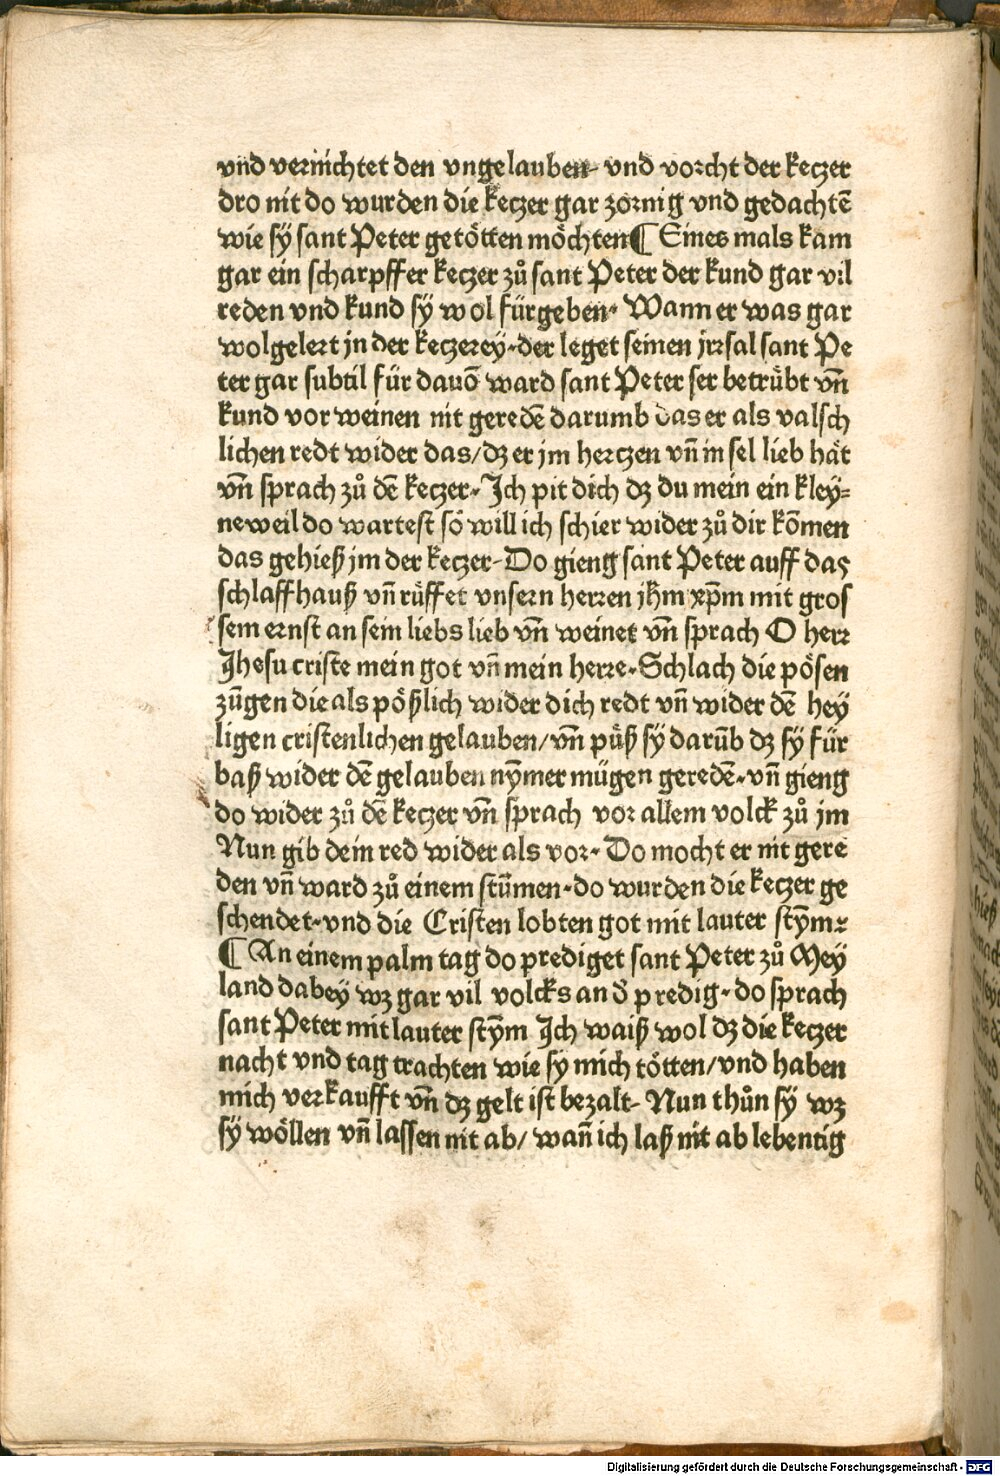 vnd vernichtet den vngelauben· vnd vorcht der keczer
dro nit do wurden die keczer gar zornig vnd gedachtē
wie sÿ sant Peter getöten möchten¶ Eines mals kam
gar ein scharpffer keczer zů sant Peter der kund gar vil
reden vnd kund sÿ wol fürgeben· Wann er was gar
wolgelert jn der keczereÿ·der leget seinen jrrsal sant Pe
ter gar subtil für dauō ward sant Peter ser betrübt vn̄
kund vor weinen nit geredē darumb das er als valsch
lichen redt wider das/dz er jm hertzen vn̄ in sel lieb hät
vn̄ sprach zů dē keczer·Jch pit dich dz du mein ein kleÿ⸗
ne weil do wartest so will ich schier wider zů dir kōmen
das gehieß jm der keczer·Do gieng sant Peter auff das
schlaffhauß vn̄ rüffet vnsern herren jhm̄ xp̄m mit gros
sem ernst an sein liebs lieb vn̄ weinet vn̄ sprach O herr
Jhesu criste mein got vn̄ mein herre·Schlach die pösen
zūgen die als pößlich wider dich redt vn̄ wider dē heÿ
ligen cristenlichen gelauben/vn̄ püß sÿ darūb dz sÿ für
baß wider dē gelauben nÿmer mügen geredē·vn̄ gieng
do wider zů dē keczer vn̄ sprach vor allem volck zů jm
Nun gib dein red wider als vor· Do mocht er nit gere
den vn̄ ward zů einem stūmen·do wurden die keczer ge
schendet·vnd die Cristen lobten got mit lauter stÿm⸗
¶ An einem palm tag do prediget sant Peter zů Meÿ
land dabeÿ wz gar vil volcks an d̄ predig·do sprach
sant Peter mit lauter stȳm Jch waiß wol dz die keczer
nacht vnd tag trachten wie sÿ mich tötten/vnd haben
mich verkaufft vn̄ dz gelt ist bezalt· Nun thůn sÿ wz
sÿ wöllen vn̄ lassen nit ab/ wan̄ ich laß nit ab lebentig
Digitalisierung gefördert durch die Deutsche Forschungsgemeinschaft - DFG